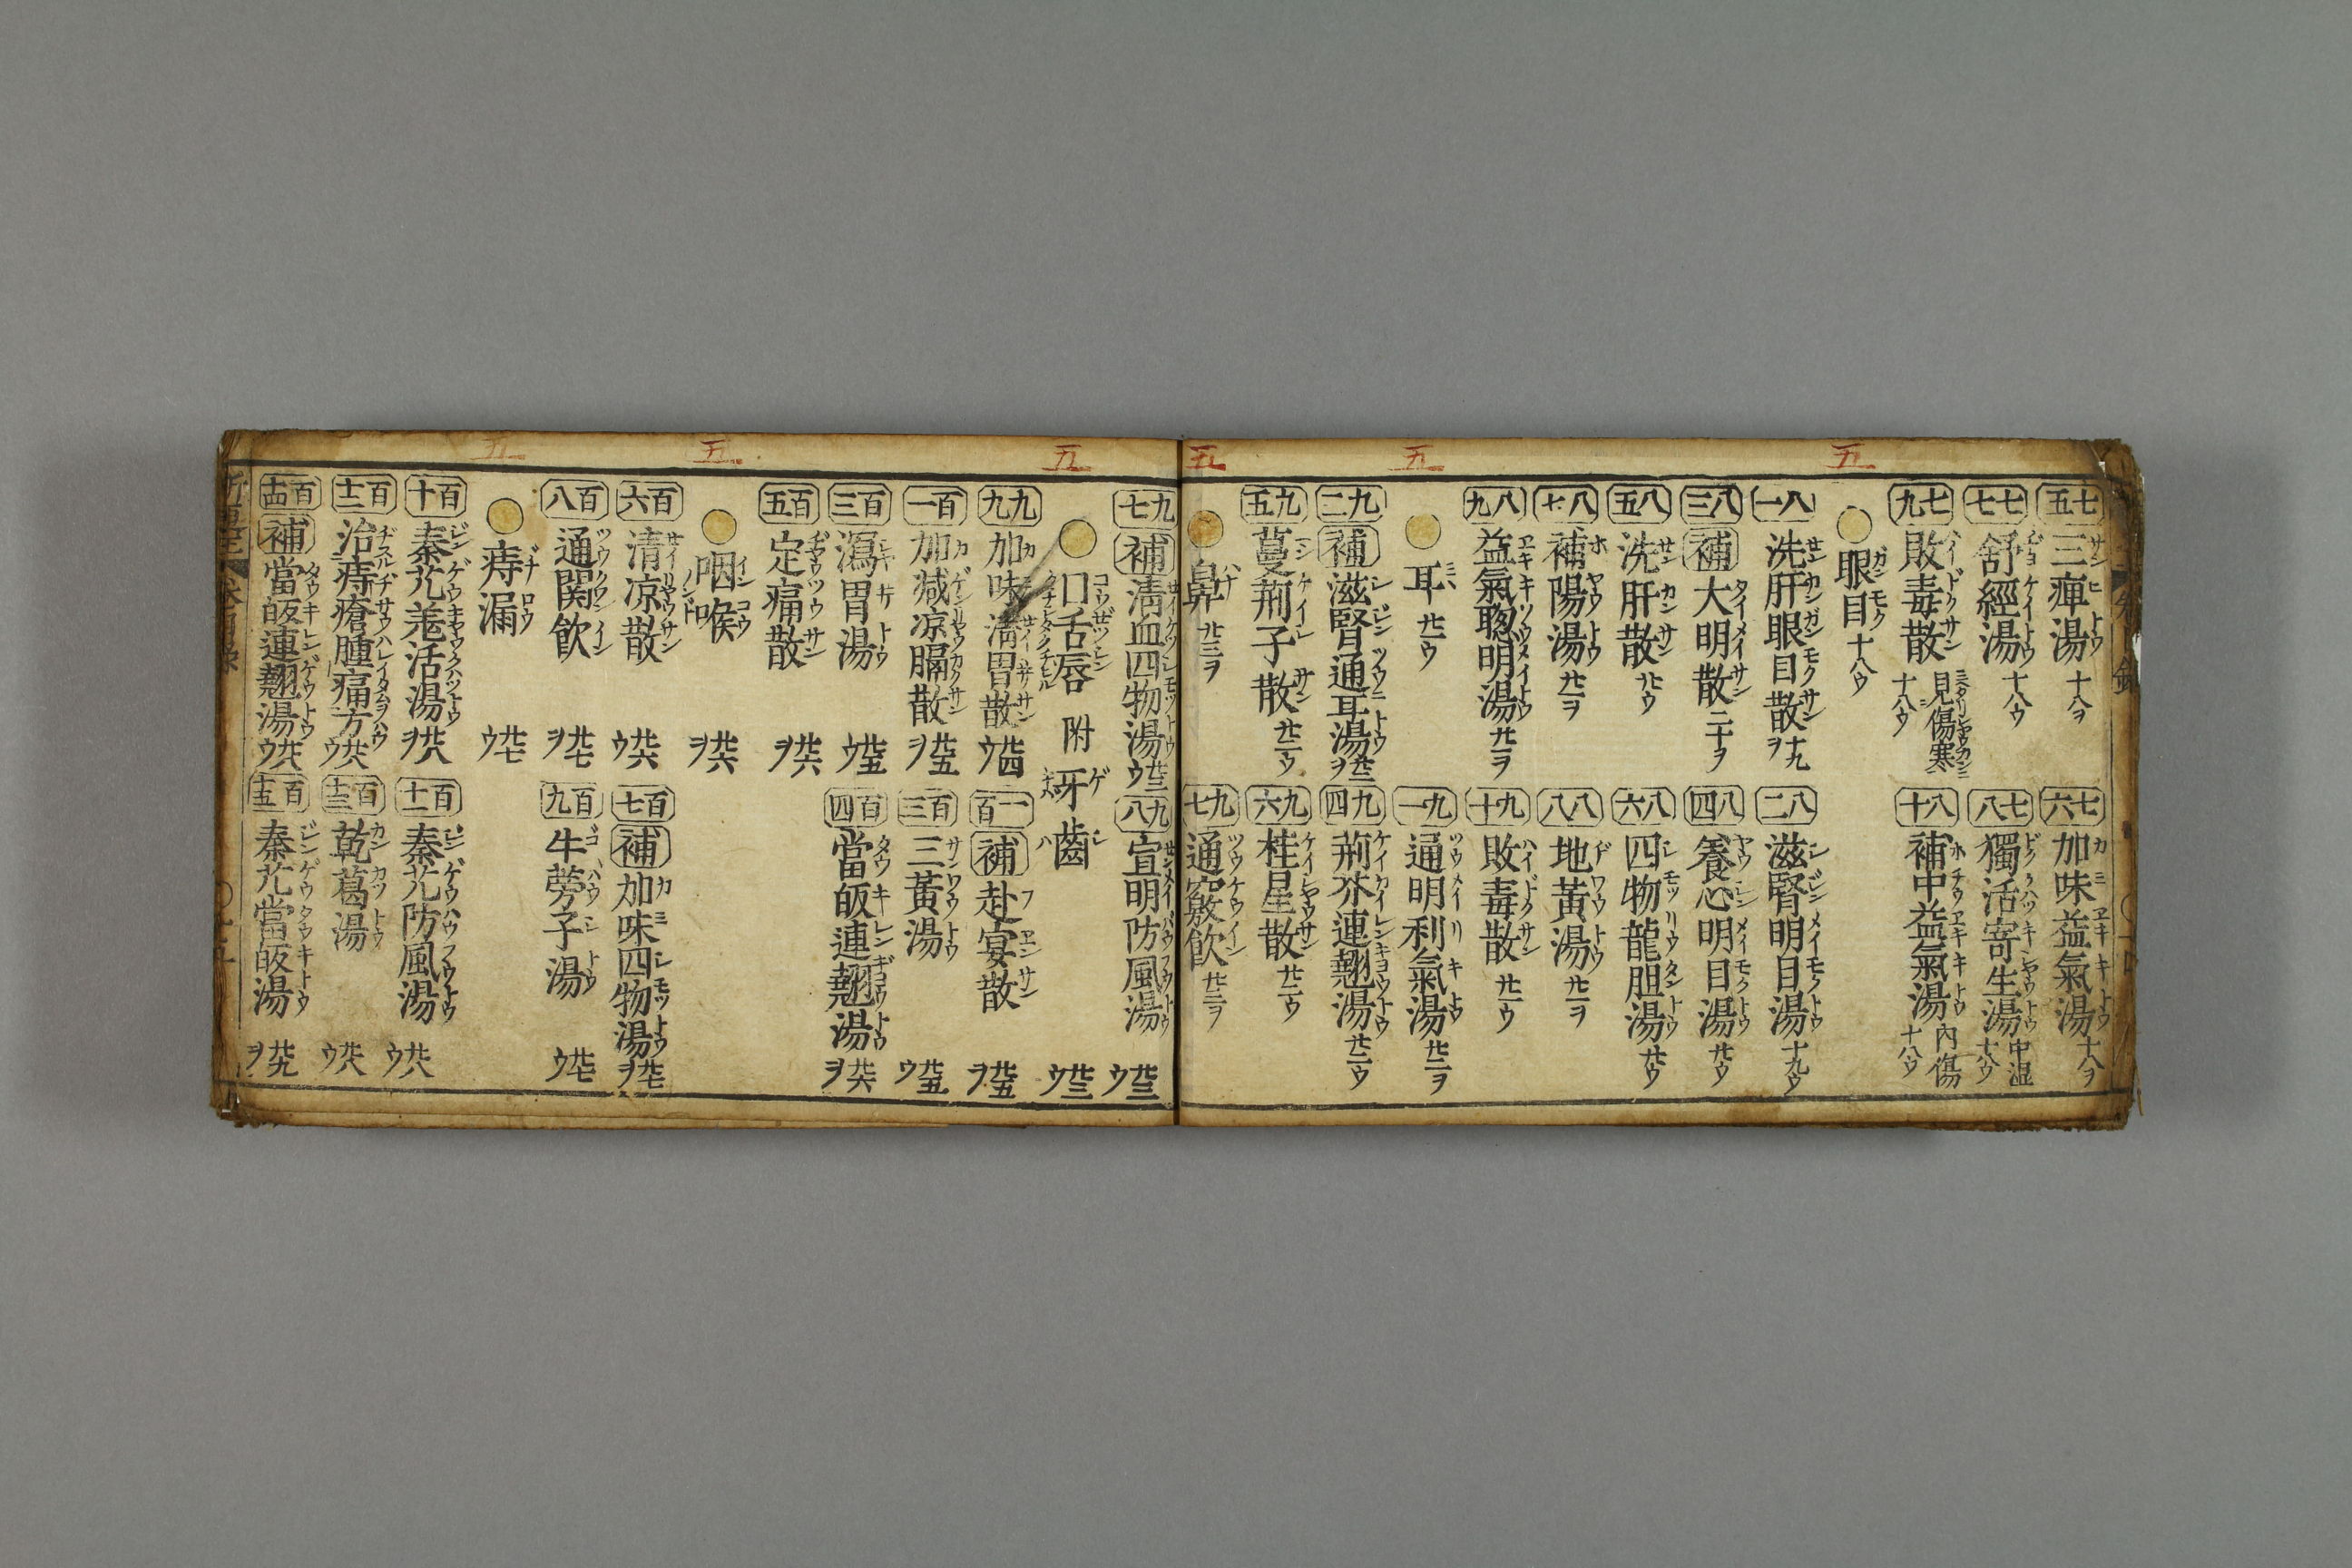 七五 三痺湯 十八ヲ
七六 加味益氣湯 十八ヲ
七七 舒經湯 十八ウ
七八 獨活寄生湯 中濕 十八ウ
七九 敗毒散 見傷寒 十八ウ
八十 補中益氣湯 內傷 十八ウ
眼目 十八ウ
八一 洗肝眼目散 十九ヲ
八二 滋腎明目湯 十九ウ
八三 補 大明散 二十ヲ
八四 養心明目湯 廿ウ
八五 洗肝散 廿ウ
八六 四物龍胆湯 廿ウ
八七 補陽湯 廿一ヲ
八八 地黃湯 廿一ヲ
八九 益氣聰明湯 廿一ヲ
九十 敗毒散 廿一ウ
耳 廿一ウ
九一 通明利氣湯 廿二ヲ
九二 補 滋腎通耳湯 廿二ヲ
九四 荊芥連翹湯 廿二ウ
九五 蔓荊子散 廿二ウ
九六 桂星散 廿二ウ
鼻 廿三ヲ
九七 通竅飲 廿三ヲ
九七 補 淸血四物湯 廿三ウ
九八 宣明防風湯 廿三ウ
口舌唇 附 牙齒 廿三ウ
九九 加味淸胃散 廿四ウ
一百 補 赴宴散 廿五ヲ
百一 加减凉膈散 廿五ヲ
百三 三黃湯 廿五ウ
百三 瀉胃湯 廿五ウ
百四 當皈連翹湯 廿六ヲ
百五 定痛散 廿六ヲ
咽喉 廿六ヲ
百六 清凉散 廿六ウ
百七 補 加味四物湯 廿七ヲ
百八 通関飲 廿七ヲ
百九 牛蒡子湯 廿七ウ
痔漏 廿七ウ
百十 秦艽羌活湯 廿八ヲ
百十一 秦艽防風湯 廿八ウ
百十二 治痔瘡腫痛方 廿八ウ
百十三 乾葛湯 廿八ウ
百十四 補 當皈連翹湯 廿八ウ
百十五 秦艽當皈湯 廿九ヲ